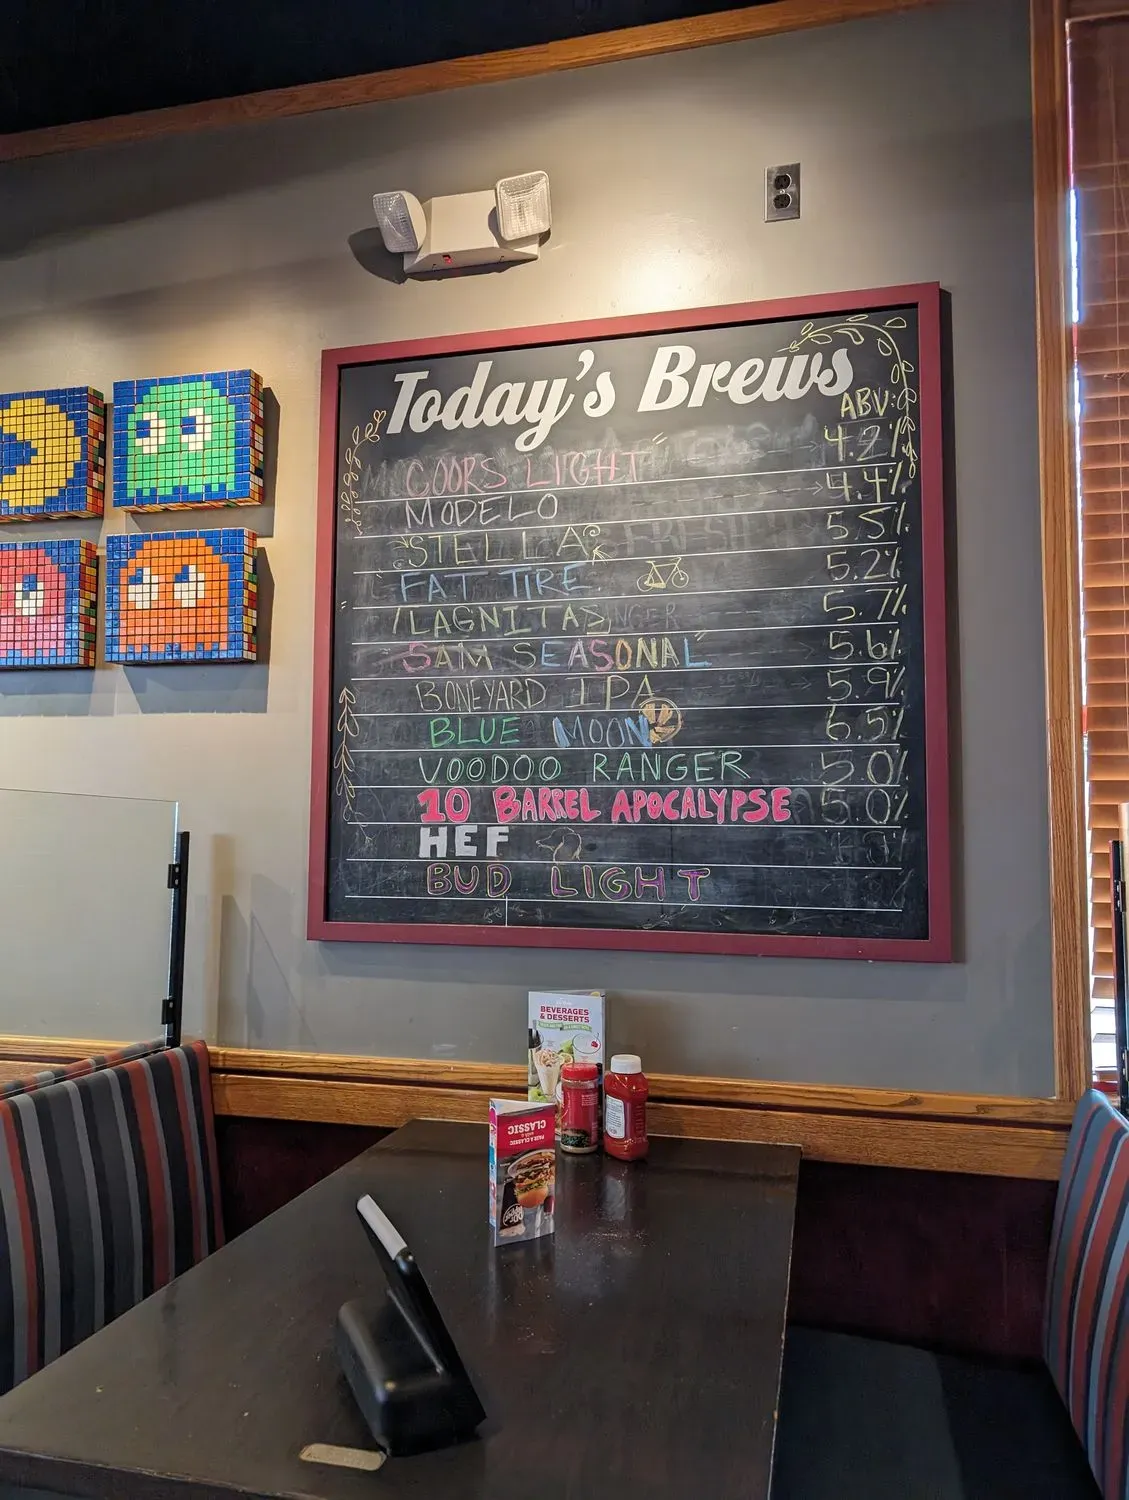 Today's Brews
ABV:
COORS LIGHT 4.2%
MODELO 4.4%
STELLA 5.5%
FAT TIRE 5.2%
LAGNITAS 5.7%
SAM SEASONAL 5.6%
BONEYARD IPA 5.9%
BLUE MOON 6.5%
VOODOO RANGER 5.0%
10 BARREL APOCALYPSE 5.0%
HEF
BUD LIGHT
BEVERAGES
& DESSERTS
PAIR A CLASSIC
CLASSIC